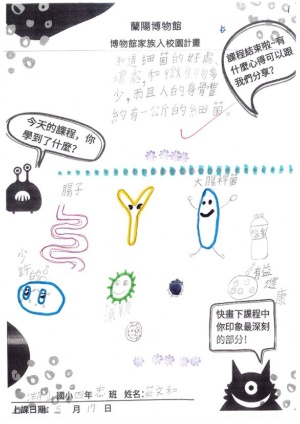 蘭陽博物館
博物館家族入校園計畫
課程結束啦~有
什麼心得可以跟
我們分享?
知道細菌的好處
壞處,和微生物多
少,而且人的身體當
約有一公斤的細菌。
今天的課程,你
學到了什麼?
腸子
大腸桿菌
益
健康
快畫下課程中
你印象最深刻
的部分!
國小四年忠班 姓名:莊文和
上課日期:5月17日